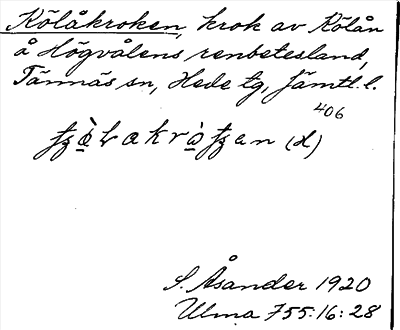 Kölåkroken, krok av Kölån
å Högvålens renbetesland,
Tännäs sn, Hede tg, Jämtl. l.
406
(d)
S. Åsander 1920
Ulma 755:16:28